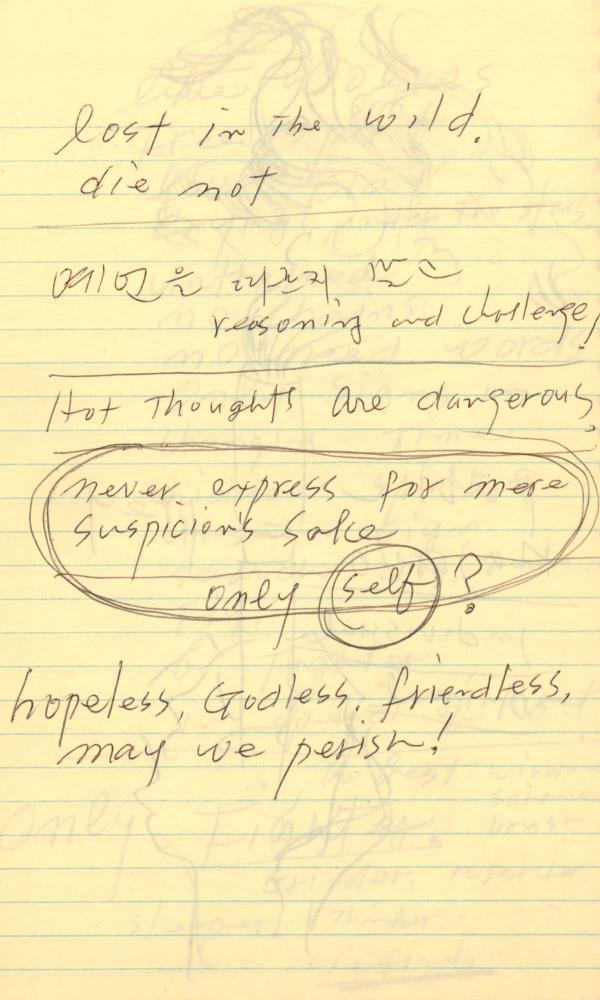 lost in the wild.
die not
예언을
reasoning and challenge!
Hot Thoughts are dangerous
never express for mere
suspicion's sake
only self ?
hopeless, Godless, friendless,
may we perish!